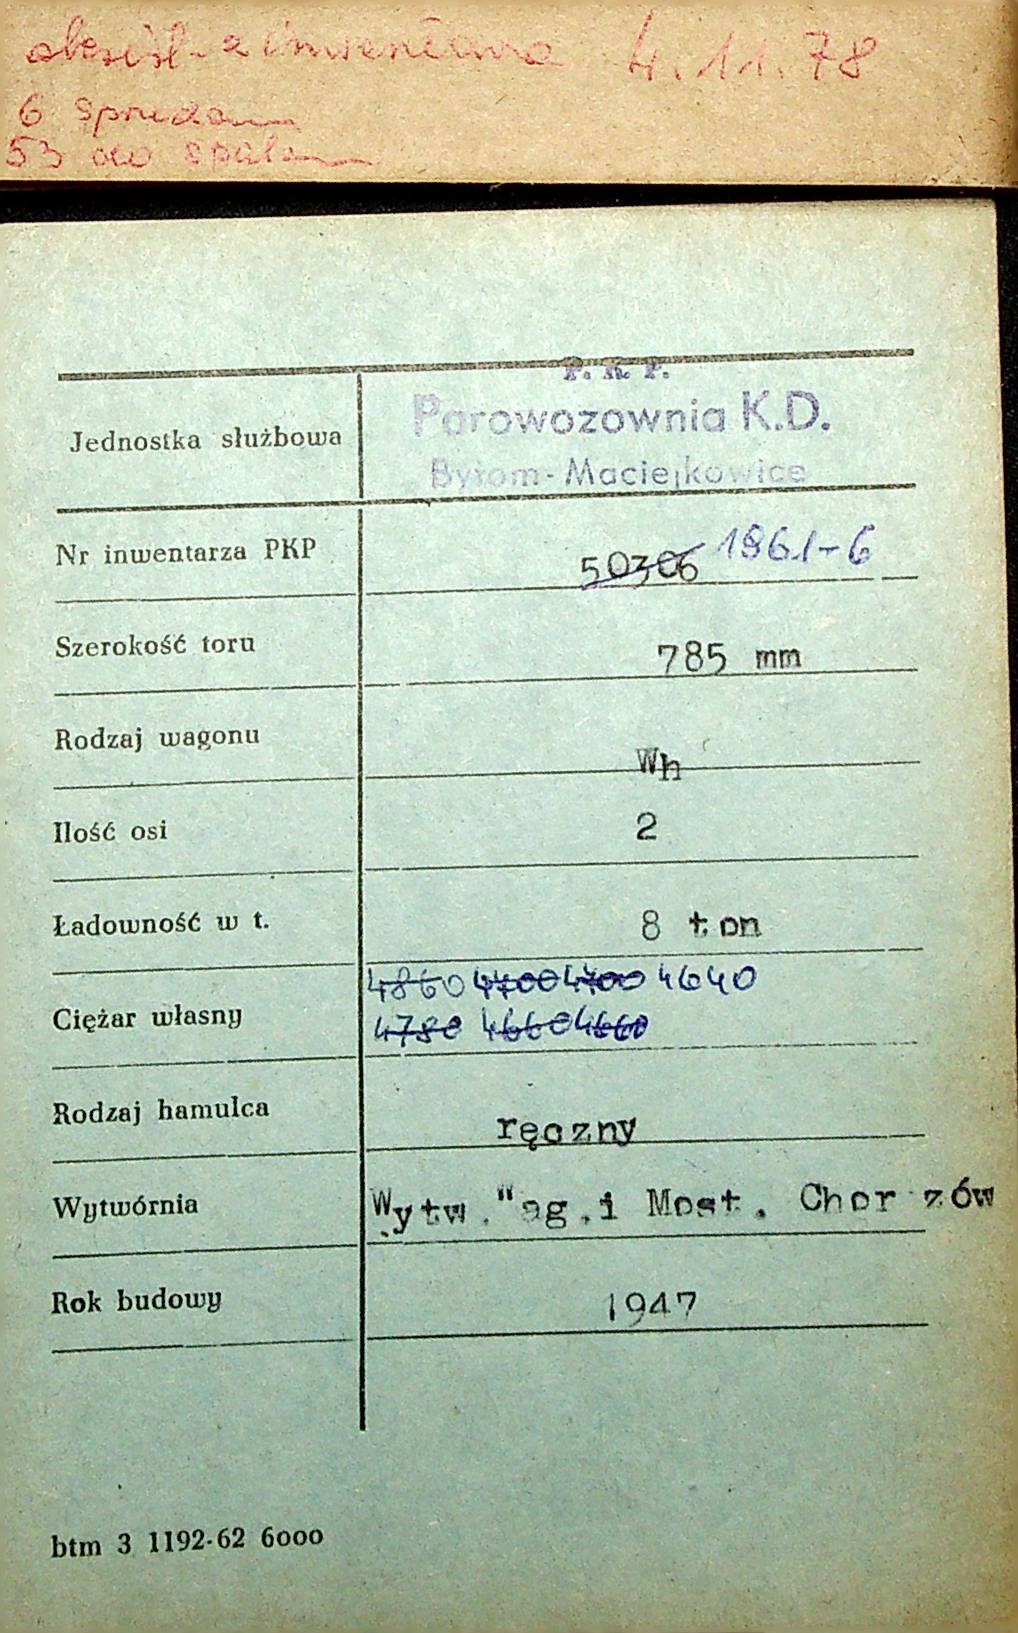 z inwentarza 4.11.78
6 sprzedan
53 do spalen
P. K. P.
Parowozownia K.D.
Bytom-Maciejkowice
Jednostka służbowa
Nr inwentarza PKP 50306 1961-6
Szerokość toru 785 mm
Rodzaj wagonu Wh
Ilość osi 2
Ładowność w t. 8 ton
4860 4700 4700 4640
Ciężar własny
4780 4660 4660
Rodzaj hamulca ręczny
Wytwórnia Wytw."ag.i Most. Chorzów
Rok budowy 1947
btm 3 1192-62 6000